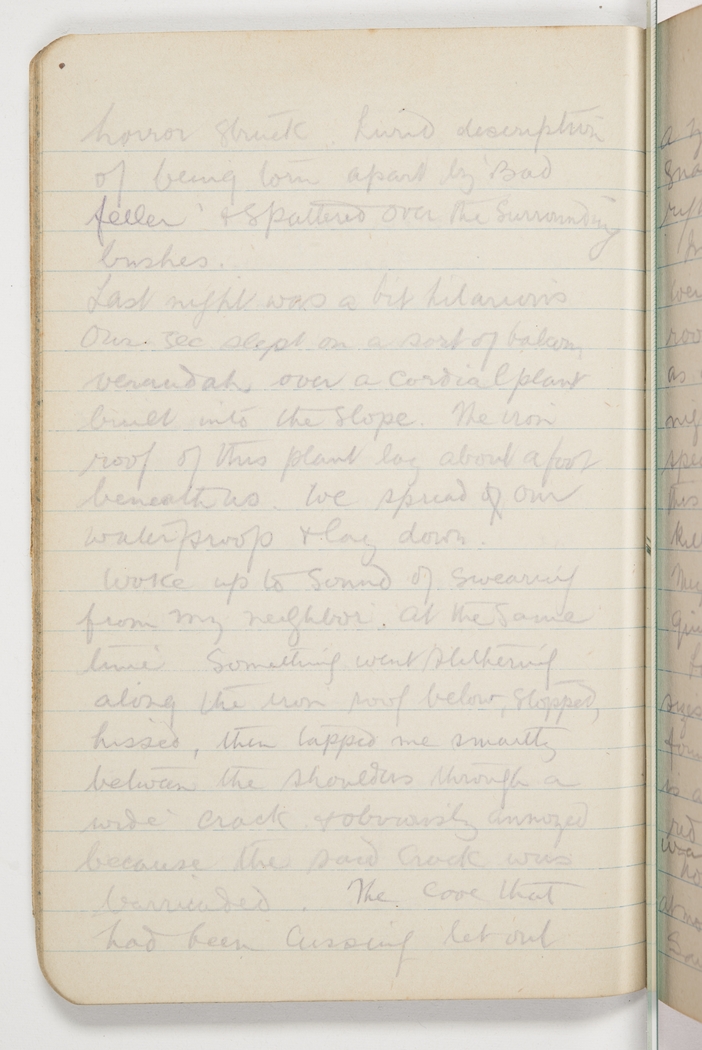 horror struck. Lurid description
of being torn apart by 'Bad
feller' & spattered over the surrounding
bushes.
Last night was a bit hilarious
Our sec slept on a sort of
verandah, over a Cordial plant
built into the slope. The iron
roof of this plant lay about a foot
beneath us. We spread our
waterproofs & lay down.
Woke up to sound of swearing
from my neighbor. At the same
time something went slithering
along the iron roof below, stopped,
hissed, then tapped me smartly
between the shoulders through a
wide crack & obviously annoyed
because the said Crack was
barricaded. The cove that
had been Cussing let out
a